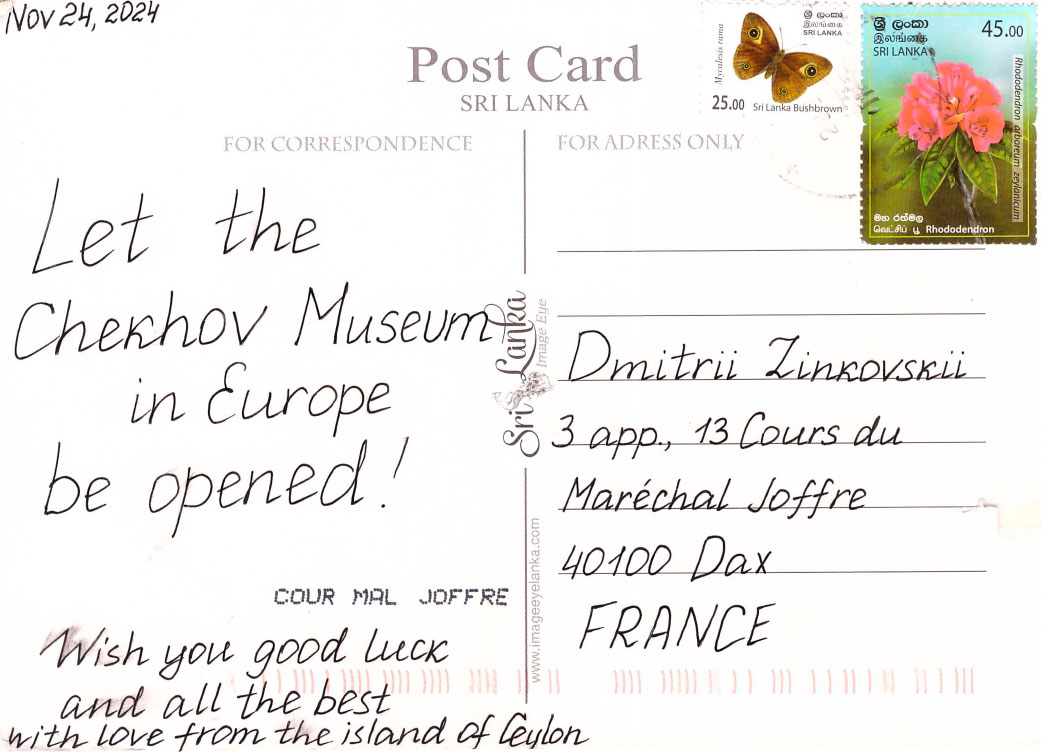 Nov 24, 2024
Post Card
SRI LANKA
FOR CORRESPONDENCE
FOR ADRESS ONLY
Mycalesis rama
ශ්‍රී ලංකා
இலங்கை
SRI LANKA
25.00
Sri Lanka Bushbrown
ශ්‍රී ලංකා
இலங்கை
SRI LANKA
45.00
Rhododendron arboreum zeylanicum
මහ රත්මල
வெட்சிப் பூ Rhododendron
Let the
Chekhov Museum
in Europe
be opened!
COUR MAL JOFFRE
Wish you good luck
and all the best
with love from the island of Ceylon
Sri Lanka
Image Eye
www.imageeyelanka.com
Dmitrii Zinkovskii
3 app., 13 Cours du
Maréchal Joffre
40100 Dax
FRANCE